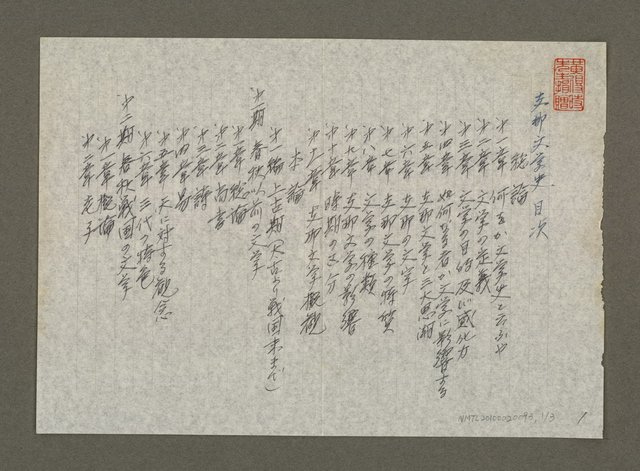 支那文学史目次
総論
第一章 何をか文学史と云ふや
第二章 文学の定義
第三章 文学の目的及び感化力
第四章 如何なる者か文学に影響する
第五章 支那文学と三大思潮
第六章 支那の文字
第七章 支那文学の特質
第八章 文学の種類
第九章 支那文学の影響
第十章 時期の区分
第十一章 支那文学概観
本論
第一編 上古期(太古より戦国末まで)
第一期 春秋以前の文学
第一章 総論
第二章 尚書
第三章 詩
第四章 易
第五章 天に対する観念
第六章 三代の特色
第二期 春秋戦国の文学
第一章 概論
第二章 老子
NMTL20100020093, 1/3
1